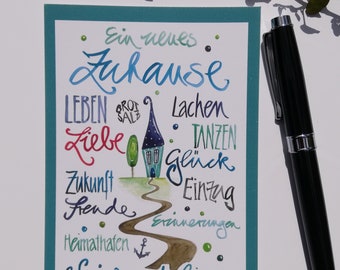 Ein neues
Zuhause
LEBEN BROT SALZ Lachen
Liebe TANZEN
Glück
Zukunft Einzug
Freude
Erinnerungen
Heimathafen